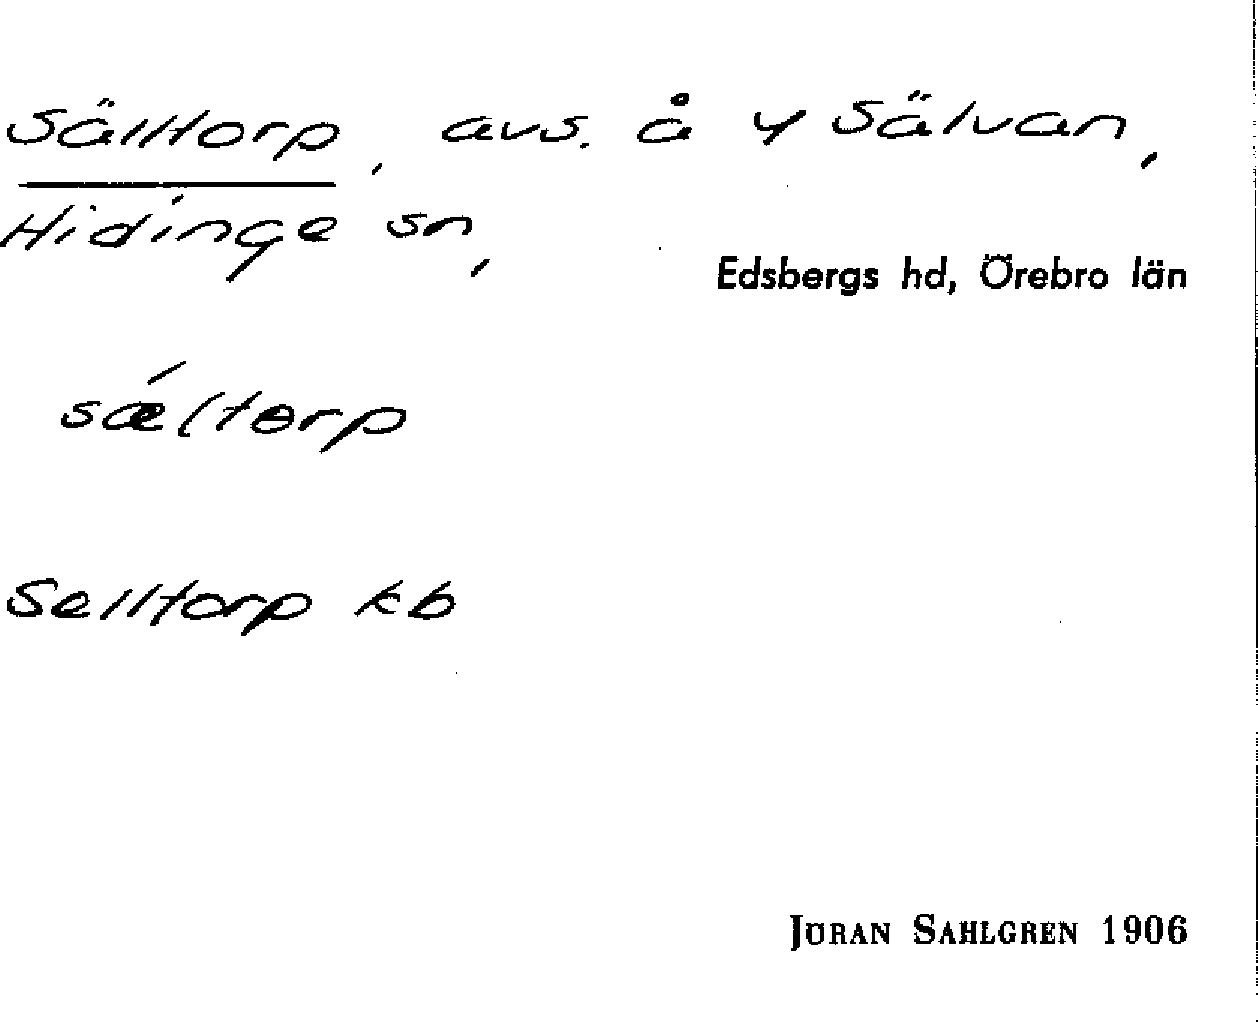 Sälltorp, avs. å Y Sälvan,
Hidinge sn,
Edsbergs hd, Örebro län
sǽltorp
Selltorp kb
JÖRAN SAHLGREN 1906